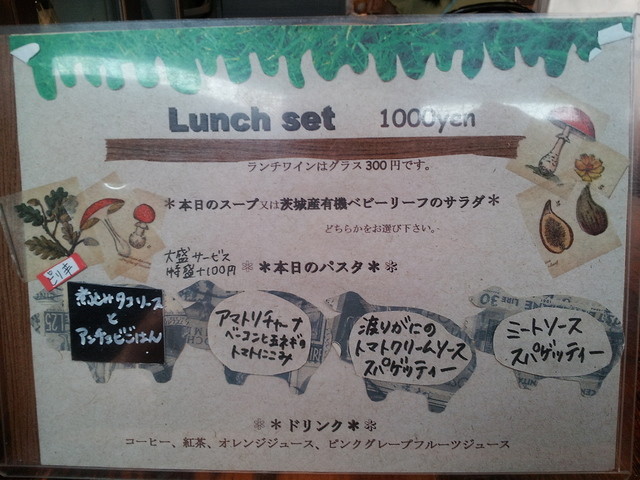 Lunch set 1000yen
ランチワインはグラス300円です。
＊本日のスープ又は茨城産有機ベビーリーフのサラダ＊
どちらかをお選び下さい。
大盛サービス
特盛+100円
＊＊本日のパスタ＊＊
ピリ辛
煮込みタコソース
と
アンチョビごはん
アマトリチャーナ
ベーコンと玉ネギの
トマトにこみ
渡りがにの
トマトクリームソース
スパゲッティー
ミートソース
スパゲッティー
＊＊ドリンク＊＊
コーヒー、紅茶、オレンジジュース、ピンクグレープフルーツジュース